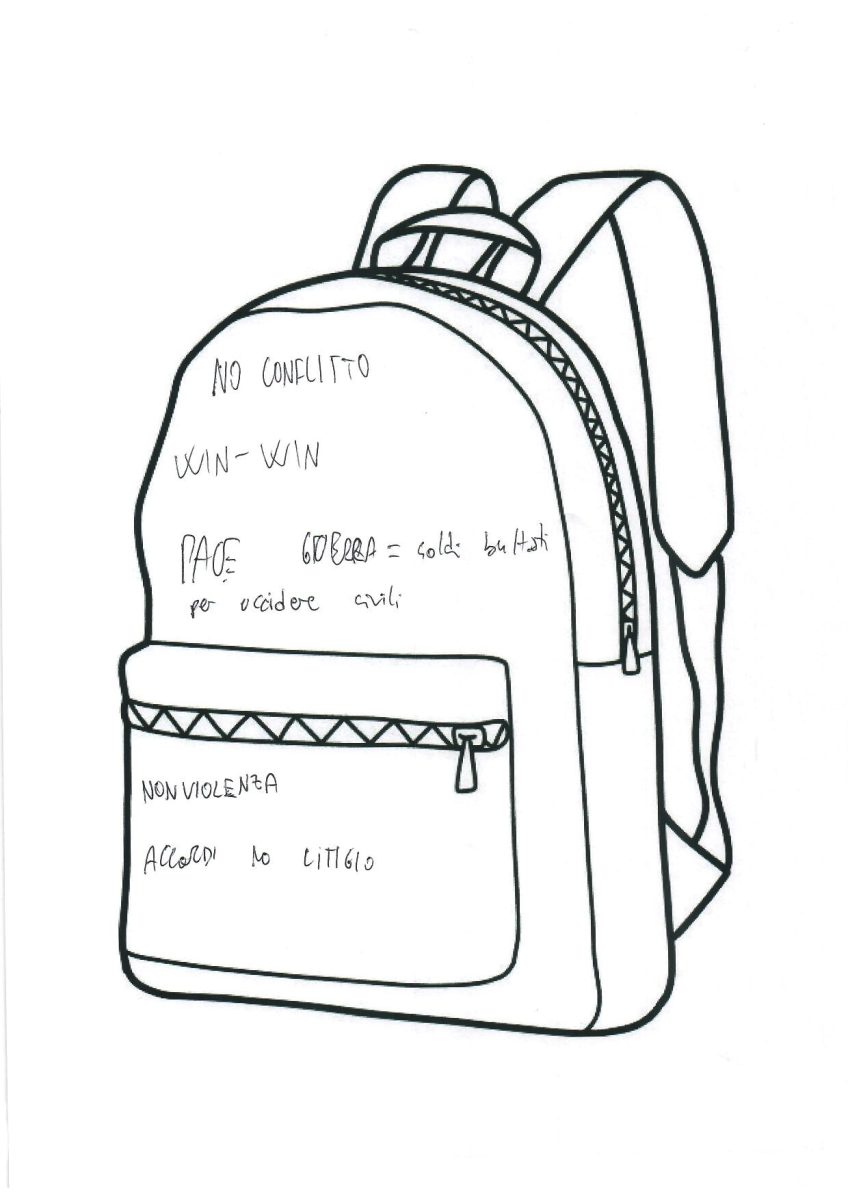 NO CONFLITTO
WIN-WIN
PACE GUERRA = soldi buttati
per uccidere civili
NONVIOLENZA
ACCORDI NO LITIGIO